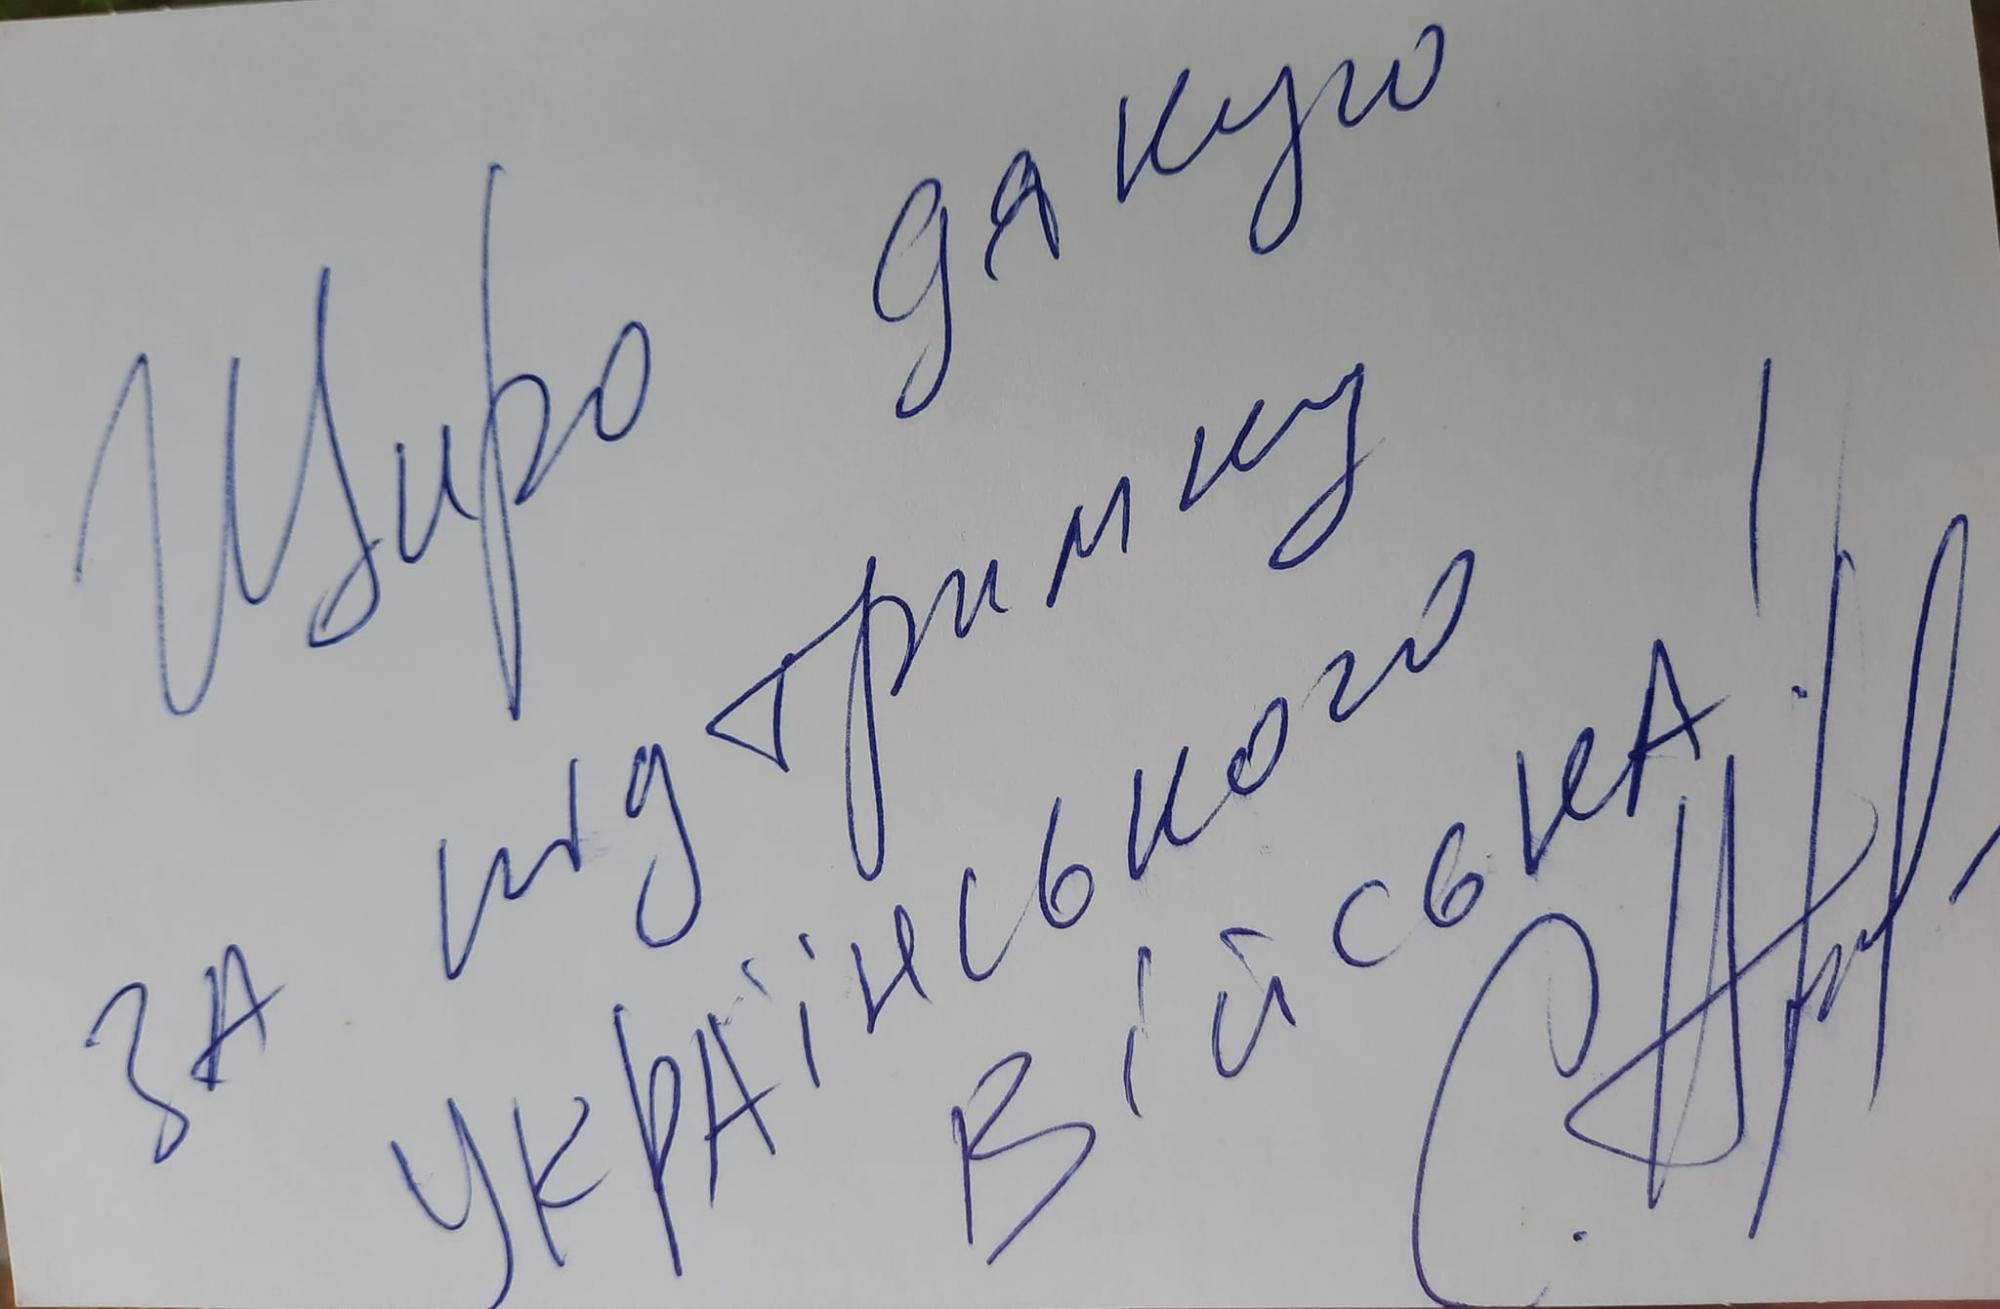 Щиро дякую
за підтримку
українського
війська!